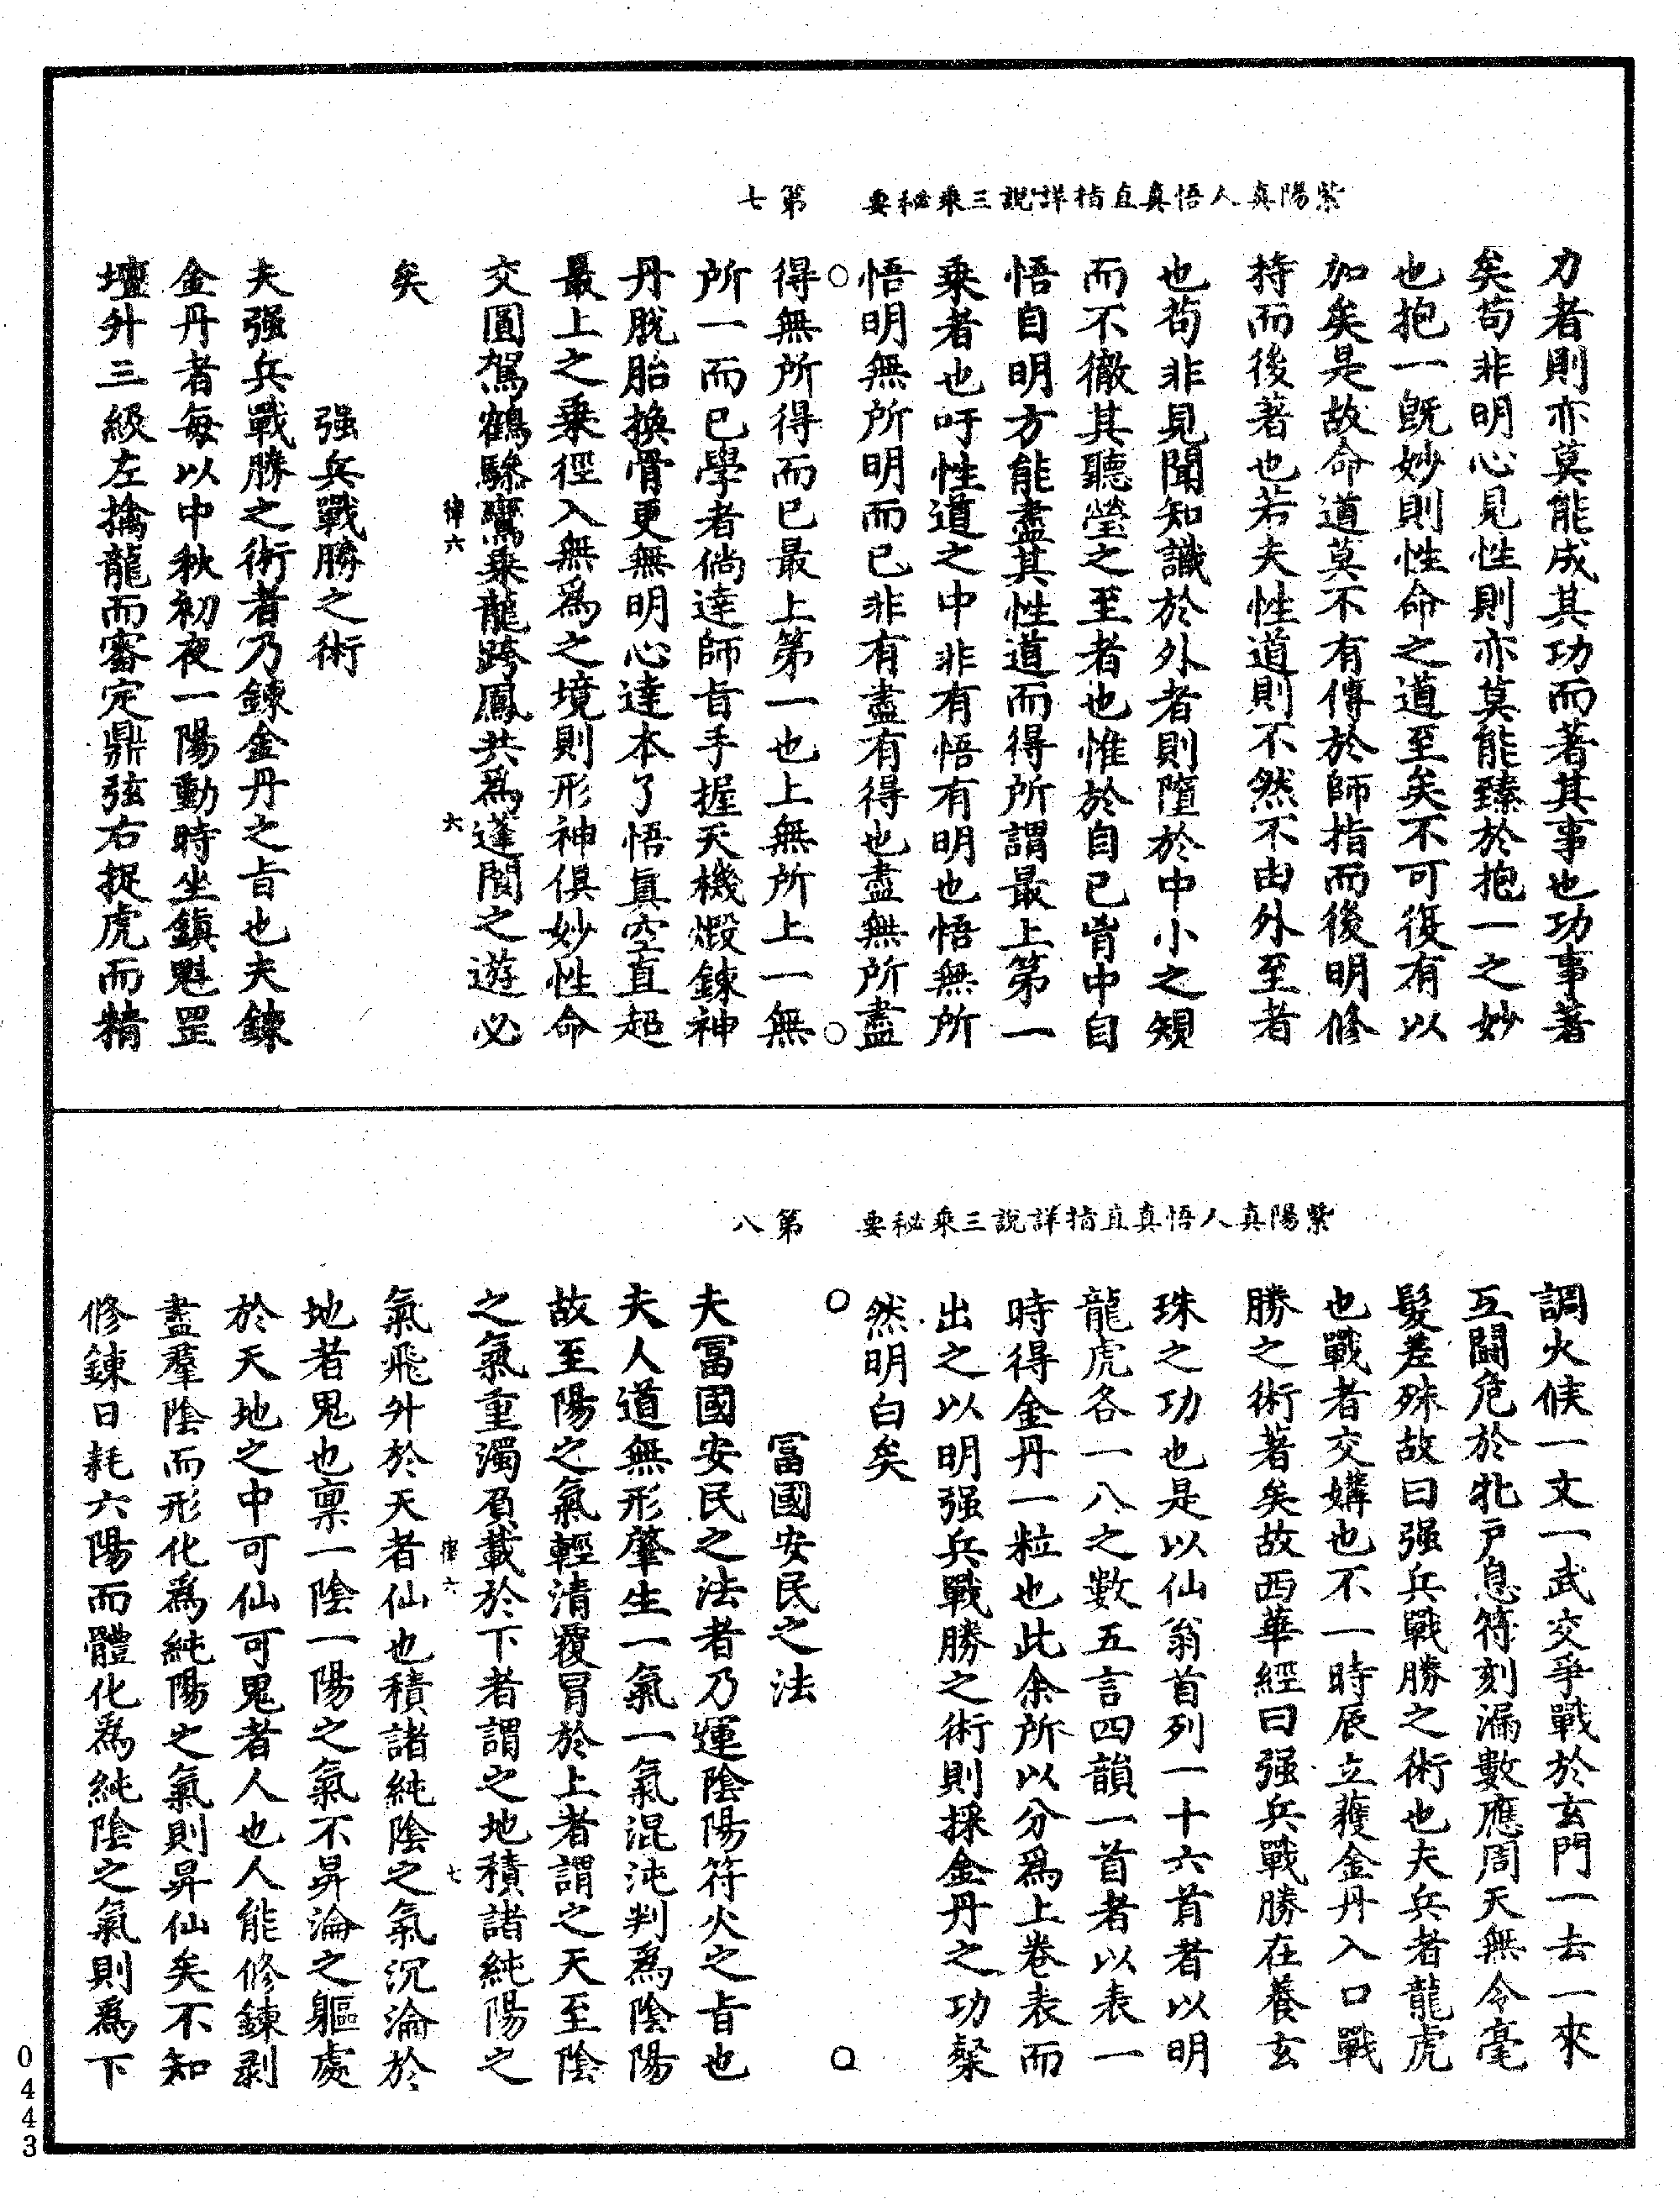 紫陽真人悟真直指詳說三乘秘要　第七
力者則亦莫能成其功而著其事也功事著
矣苟非明心見性則亦莫能臻於抱一之妙
也抱一既妙則性命之道至矣不可復有以
加矣是故命道莫不有傳於師指而後明修
持而後著也若夫性道則不然不由外至者
也苟非見聞知識於外者則墮於中小之規
而不徹其聽瑩之至者也惟於自己胷中自
悟自明方能盡其性道而得所謂最上第一
乘者也吁性道之中非有悟有明也悟無所
悟明無所明而已非有盡有得也盡無所盡
得無所得而已最上第一也上無所上一無
所一而已學者倘達師旨手握天機煅鍊神
丹脫胎換骨更無明心達本了悟真空直超
最上之乘徑入無爲之境則形神俱妙性命
交圓駕鶴驂鸞乘龍跨鳳共爲蓬閬之遊必
律六　六
矣
强兵戰勝之術
夫强兵戰勝之術者乃鍊金丹之旨也夫鍊
金丹者每以中秋初夜一陽動時坐鎮魁罡
壇升三級左擒龍而審定鼎弦右捉虎而精
紫陽真人悟真直指詳說三乘秘要　第八
調火候一文一武交爭戰於玄門一去一來
互鬪危於牝戸息符刻漏數應周天無令毫
髮差殊故曰强兵戰勝之術也夫兵者龍虎
也戰者交媾也不一時辰立獲金丹入口戰
勝之術著矣故西華經曰强兵戰勝在養玄
珠之功也是以仙翁首列一十六首者以明
龍虎各一八之數五言四韻一首者以表一
時得金丹一粒也此余所以分爲上卷表而
出之以明强兵戰勝之術則採金丹之功粲
然明白矣
冨國安民之法
夫冨國安民之法者乃運陰陽符火之旨也
夫人道無形肇生一氣一氣混沌判爲陰陽
故至陽之氣輕清覆冒於上者謂之天至陰
之氣重濁負載於下者謂之地積諸純陽之
律六　七
氣飛升於天者仙也積諸純陰之氣沉淪於
地者鬼也禀一陰一陽之氣不昇淪之軀處
於天地之中可仙可鬼者人也人能修鍊剥
盡羣陰而形化爲純陽之氣則昇仙矣不知
修鍊日耗六陽而體化爲純陰之氣則爲下
0443